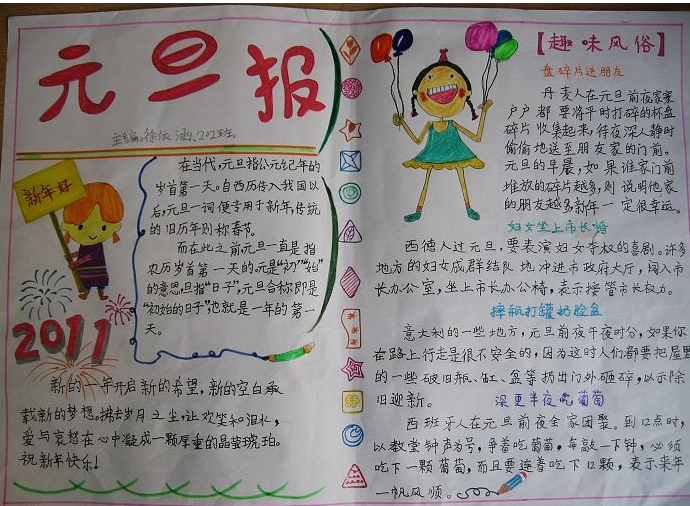 元旦报
主编:徐依涵,202班。
新年好
在当代,元旦指公元纪年的
岁首第一天。自西历传入我国以
后,元旦一词便专用于新年,传统
的旧历年则称春节。
而在此之前元旦一直是指
农历岁首第一天的元是“初”“始”
的意思,旦指“日子”,元旦合称即是
“初始的日子”,也就是一年的第一
天。
2011
新的一年开启新的希望,新的空白承
载新的梦想。拂去岁月之尘,让欢笑和泪水,
爱与哀愁在心中凝成一颗厚重的晶莹琥珀。
祝新年快乐!
【趣味风俗】
盘碎片送朋友
丹麦人在元旦前夜家家
户户都要将平时打碎的杯盘
碎片收集起来,待夜深人静时
偷偷地送至朋友家的门前。
元旦的早晨,如果谁家门前
堆放的碎片越多,则说明他家
的朋友越多新年一定很幸运。
妇女坐上市长椅
西德人过元旦,要表演妇女夺权的喜剧。许多
地方的妇女成群结队地冲进市政府大厅,闯入市
长办公室,坐上市长办公椅,表示接管市长权力。
摔瓶打罐扔脸盆
意大利的一些地方,元旦前夜午夜时分,如果你
在路上行走是很不安全的,因为这时人们都要把屋里
的一些破旧瓶、缸、盆等扔出门外砸碎,以示除
旧迎新。
深更半夜吃葡萄
西班牙人在元旦前夜全家团聚。到12点时,
以教堂钟声为号,争着吃葡萄,每敲一下钟,必须
吃下一颗葡萄,而且要连着吃下12颗,表示来年
一帆风顺。